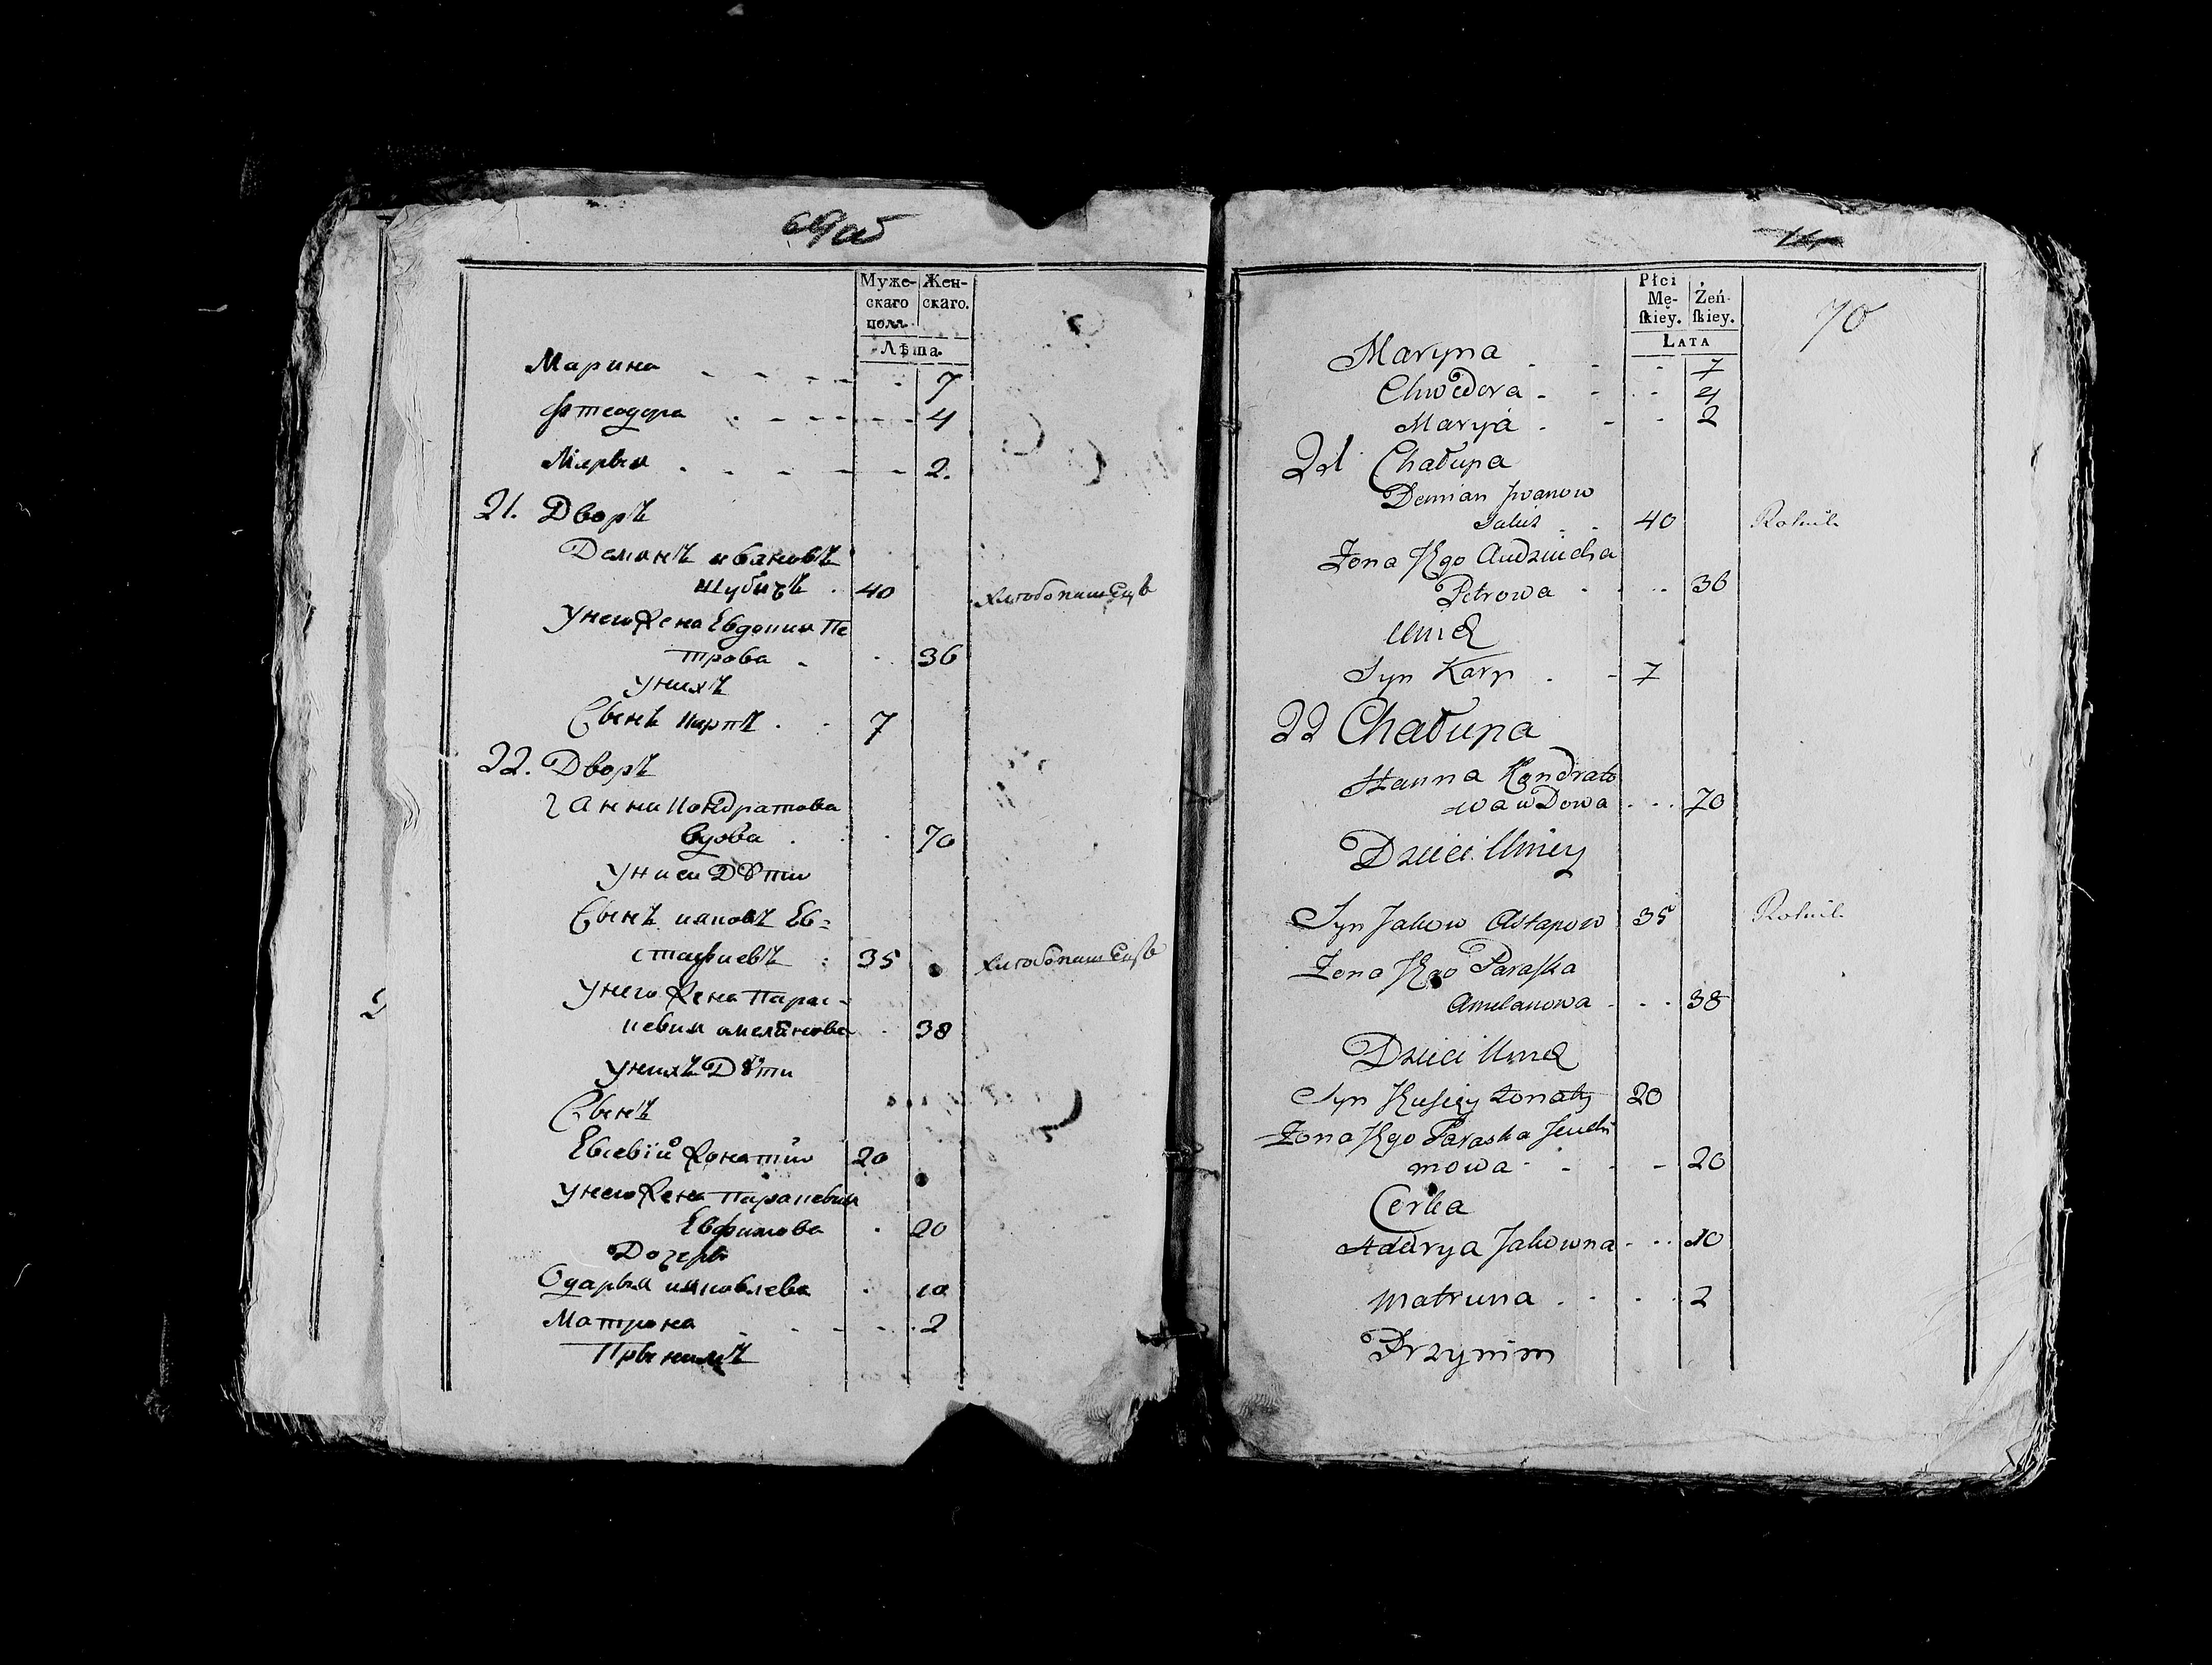 69 об
Муже-
скаго
пола.
Жен-
скаго.
Лѣта.
Марина 7
Фтеодора 4
Марья 2.
21. Дворъ
Деминъ ивановъ
шубичъ 40 хлѣбопашецъ
У него жена Евдокия Пе
трова 36
У нихъ
Сынъ карпъ 7
22. Дворъ
ганна кондратова
вдова 70
У ниеи Дѣти
Сынъ иаковъ Ев=
стафиевъ 35 хлѣбопашецъ
У него жена Парас-
кевия амелянова 38
У нихъ Дѣти
Сынъ
Евсевiй жонатий 20
У него жена Параскевия
Евфимова 20
Дочеры
Одарья иаковлева 10
Матрона 2
14
70
Płci
Mę-
ſkiey.
Żeń-
ſkiey.
LATA
Maryna 7
Chwedora 4
Maryia 2
21 Chałupa
Demian Iwanow
40 Rolnik
Żona Jego Audziucha
Petrowa 36
U nich
Syn Karp 7
22 Chałupa
Hanna Kondrato
wa wdowa 70
Dzieci U niey
Syn Jakow Astapow 35 Rolnik
Żona Jego Paraſka
Amelanowa 38
Dzieci U nich
Syn żonaty 20
Żona Jego Paraska Jeuchi
mowa 20
Corka
Adarya Jakowna 10
Matruna 2
Przynim